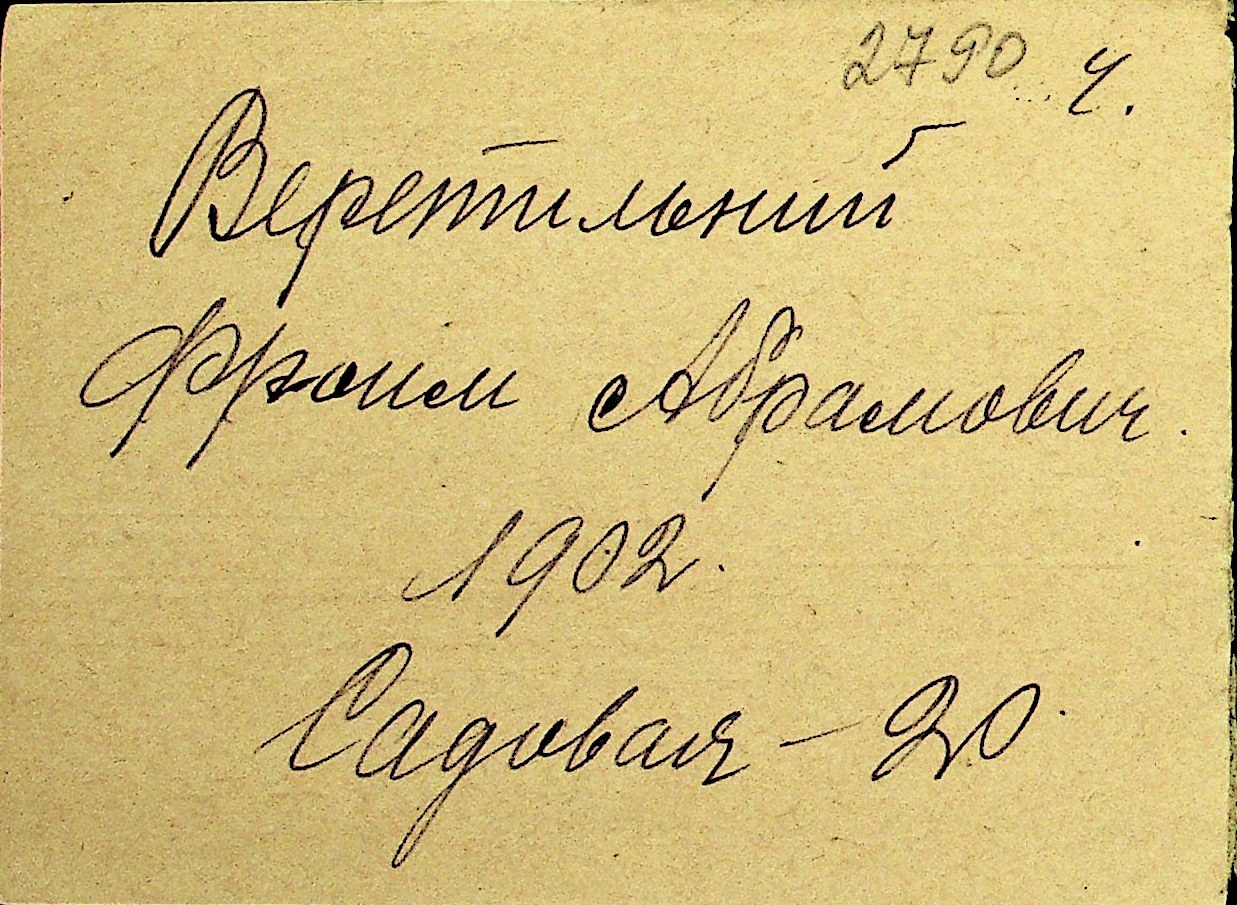 2790 ч.
Веретильний
Фроим Абрамович.
1902.
Садовая - 20